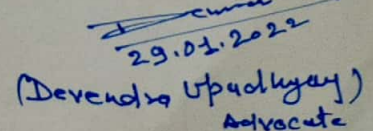 29.01.2022
(Devendra Upadhyay)
Advocate